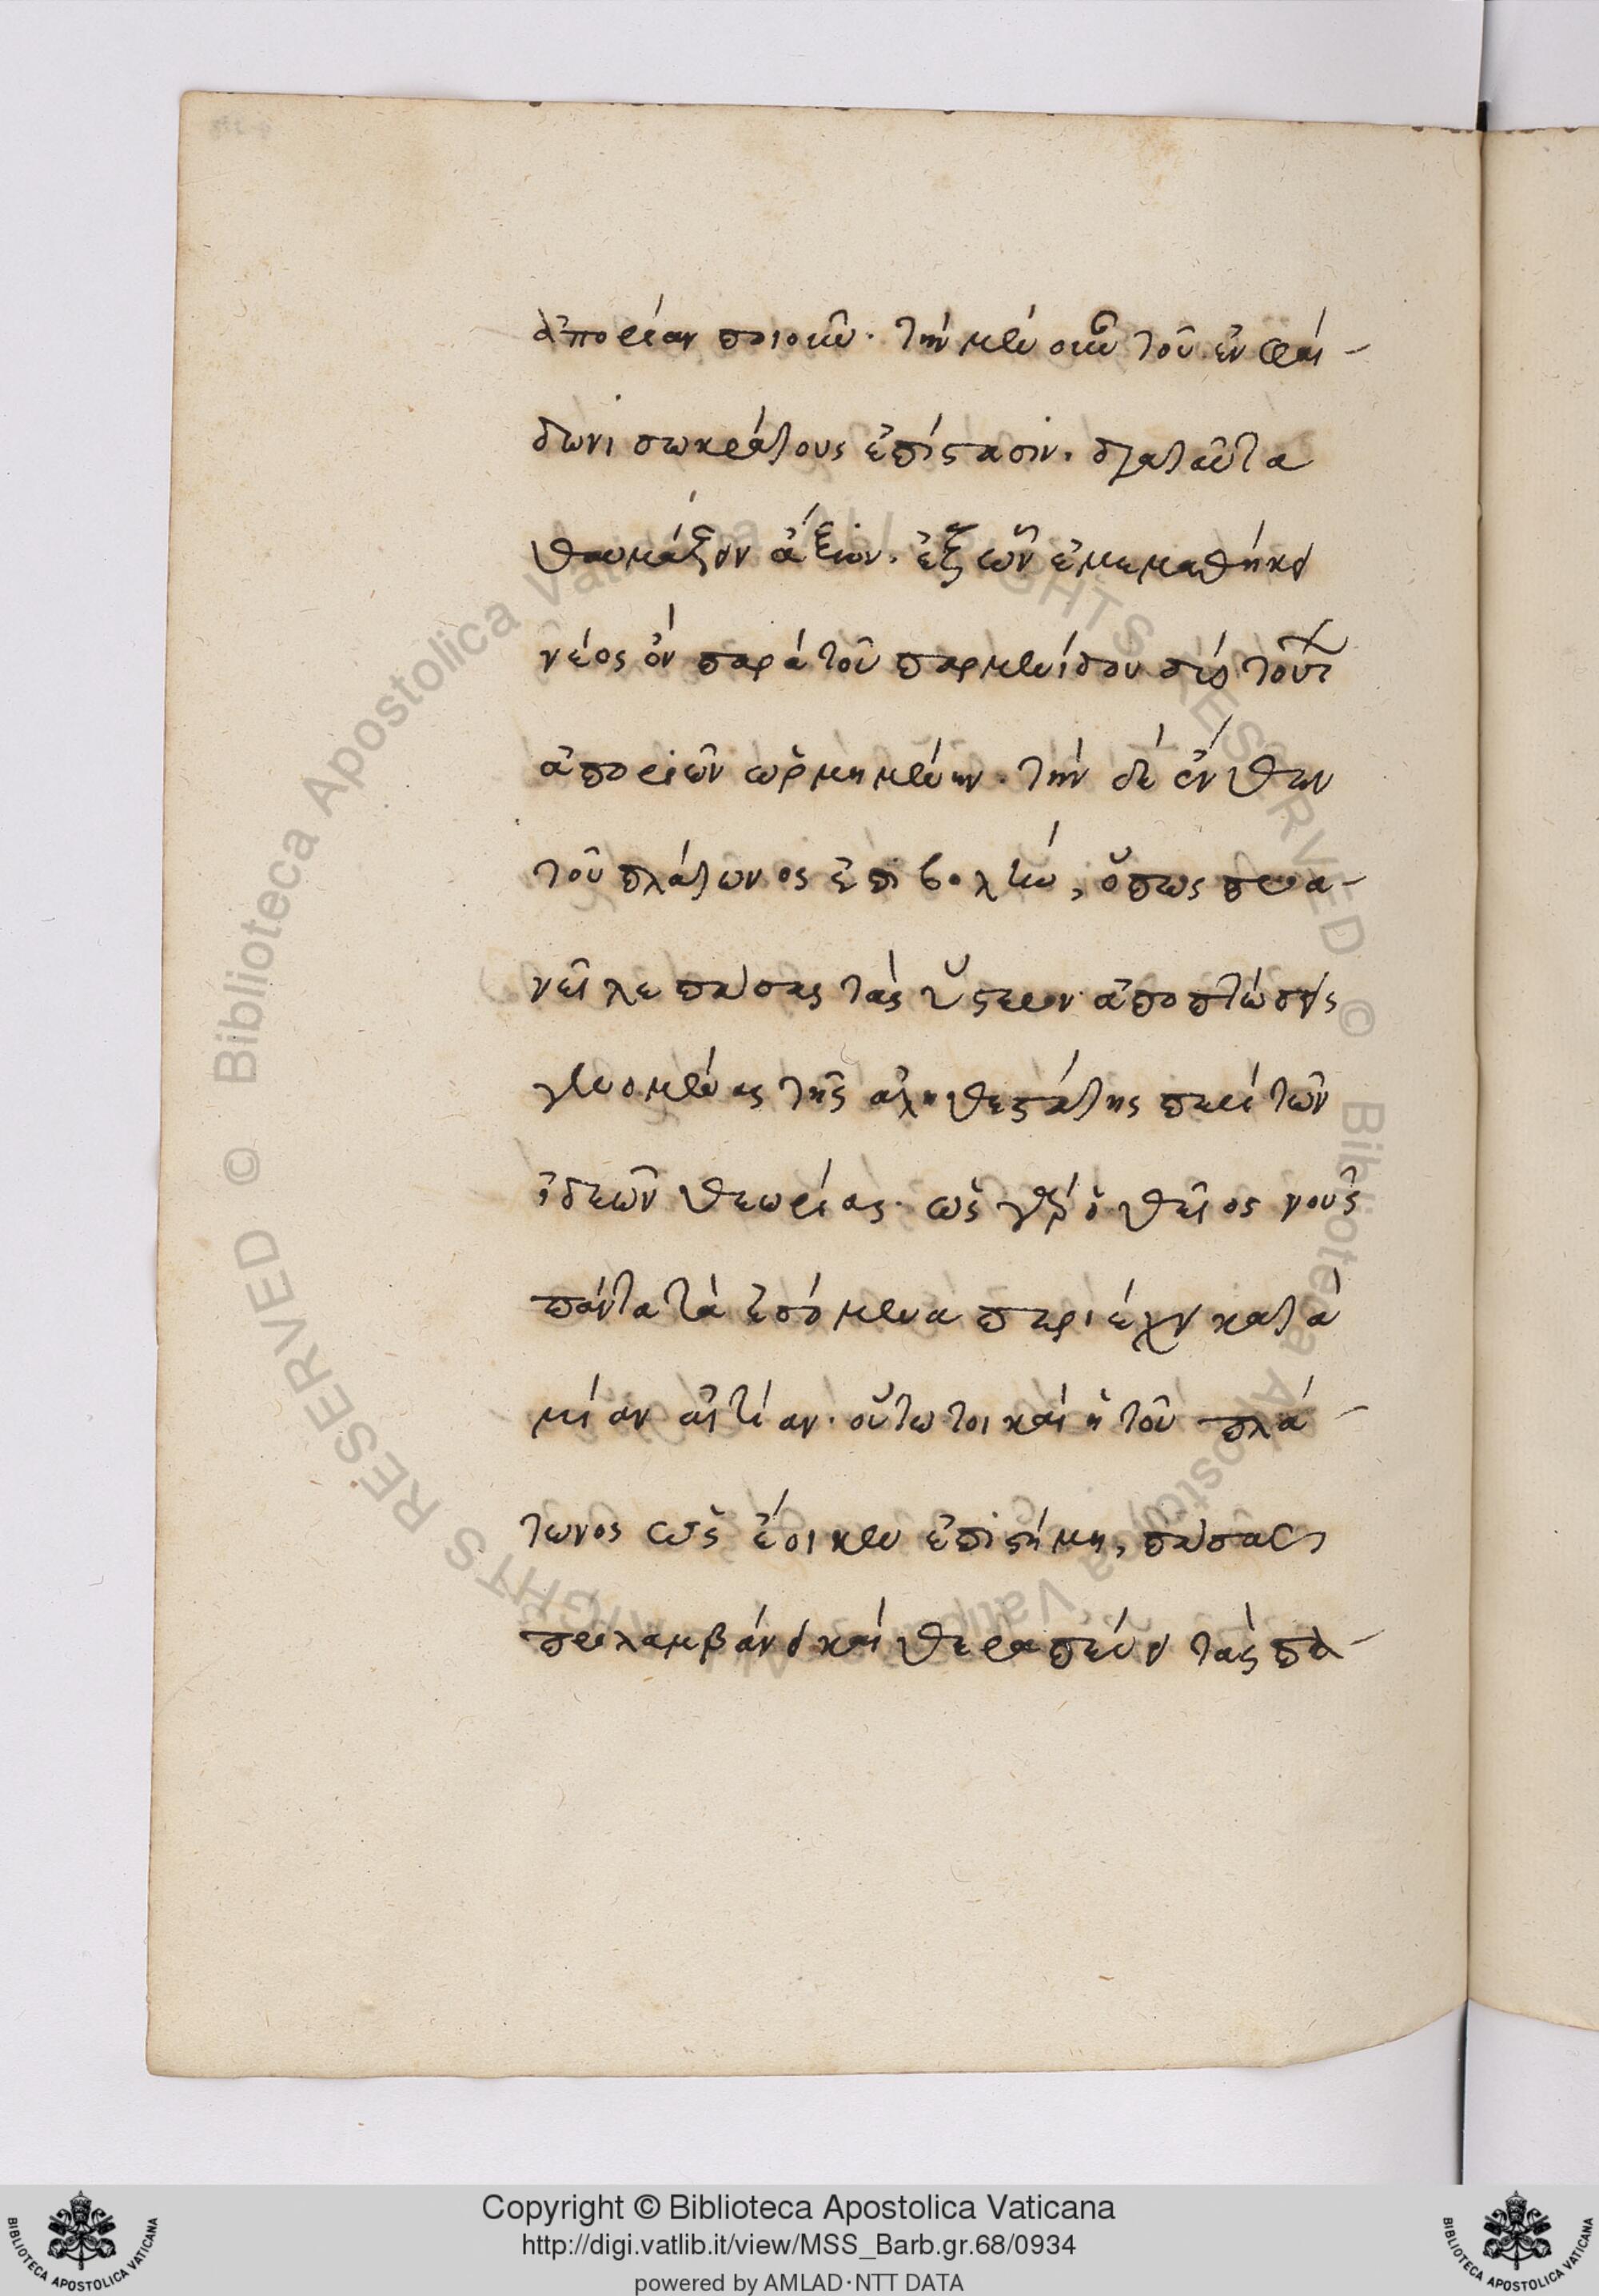 ἀπορίαν ποιοῦν· τὴν μὲν οὖν τοῦ ἐν φαί-
δωνι σωκράτους ἐπίστασιν· διαταῦτα
θαυμάζειν ἄξιον· ἐξ ὧν ἐμεμαθήκει
νέος ὢν παρὰ τοῦ παρμενίδου περὶ τούτων
ἀποριῶν ὡρμημένην· τὴν δὲ ἔνθεον
τοῦ πλάτωνος ἐπιβολὴν, ὅπως προα-
νεῖλε πάσας τὰς ὕστερον ἀποπτώσεις
γενομένας τῆς ἀληθεστάτης περὶ τῶν
ἰδεῶν θεωρίας· ὡς γὰρ ὁ θεῖος νοῦς
πάντα τὰ ἐσόμενα περιέχει κατὰ
μίαν αἰτίαν· οὕτω τοι καὶ ἡ τοῦ πλά-
τωνος ὡς ἔοικεν ἐπιστήμη, πάσας
προλαμβάνει καὶ θεραπεύει τὰς πα-
Copyright © Biblioteca Apostolica Vaticana
http://digi.vatlib.it/view/MSS_Barb.gr.68/0934
powered by AMLAD·NTT DATA
BIBLIOTECA APOSTOLICA VATICANA
BIBLIOTECA APOSTOLICA VATICANA
© Biblioteca Apostolica Vaticana ALL RIGHTS RESERVED
© Biblioteca Apostolica Vaticana ALL RIGHTS RESERVED